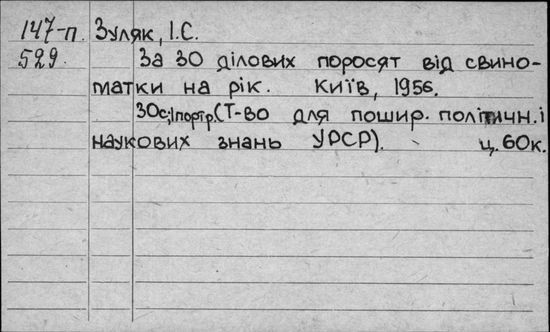 147-п. Зуляк, І.С.
529. За 30 ділових поросят від свино-
матки на рік. Київ, 1956.
30с; 1портр. (Т-во для пошир. політичн. і
наукових знань УРСР). ц. 60к.